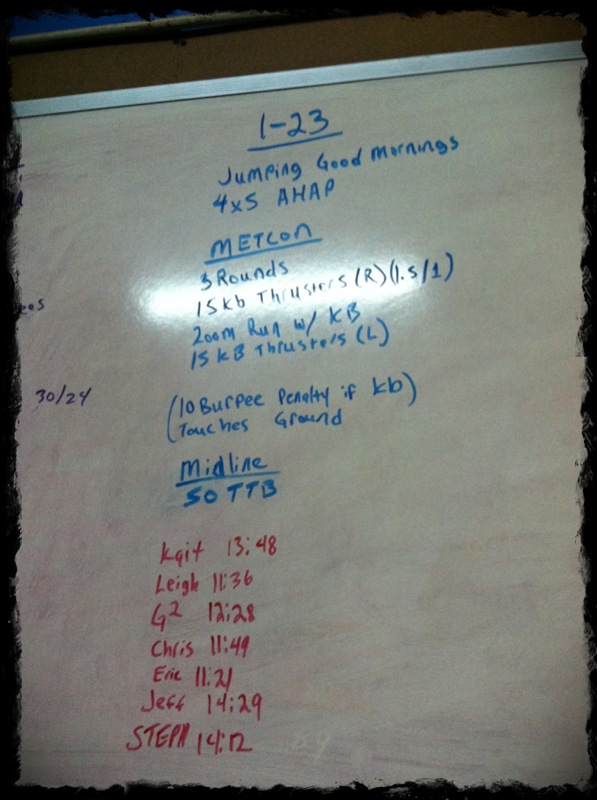 1-23
Jumping Good Mornings
4x5 AHAP
METCON
3 Rounds
15 kb Thrusters (R) (1.5/1)
200m Run w/ KB
15 KB Thrusters (L)
30/24
(10 Burpee Penalty if kb)
Touches Ground
Midline
50 TTB
Kait 13:48
Leigh 11:36
G2 12:28
Chris 11:49
Eric 11:21
Jeff 14:29
STEPH 14:12